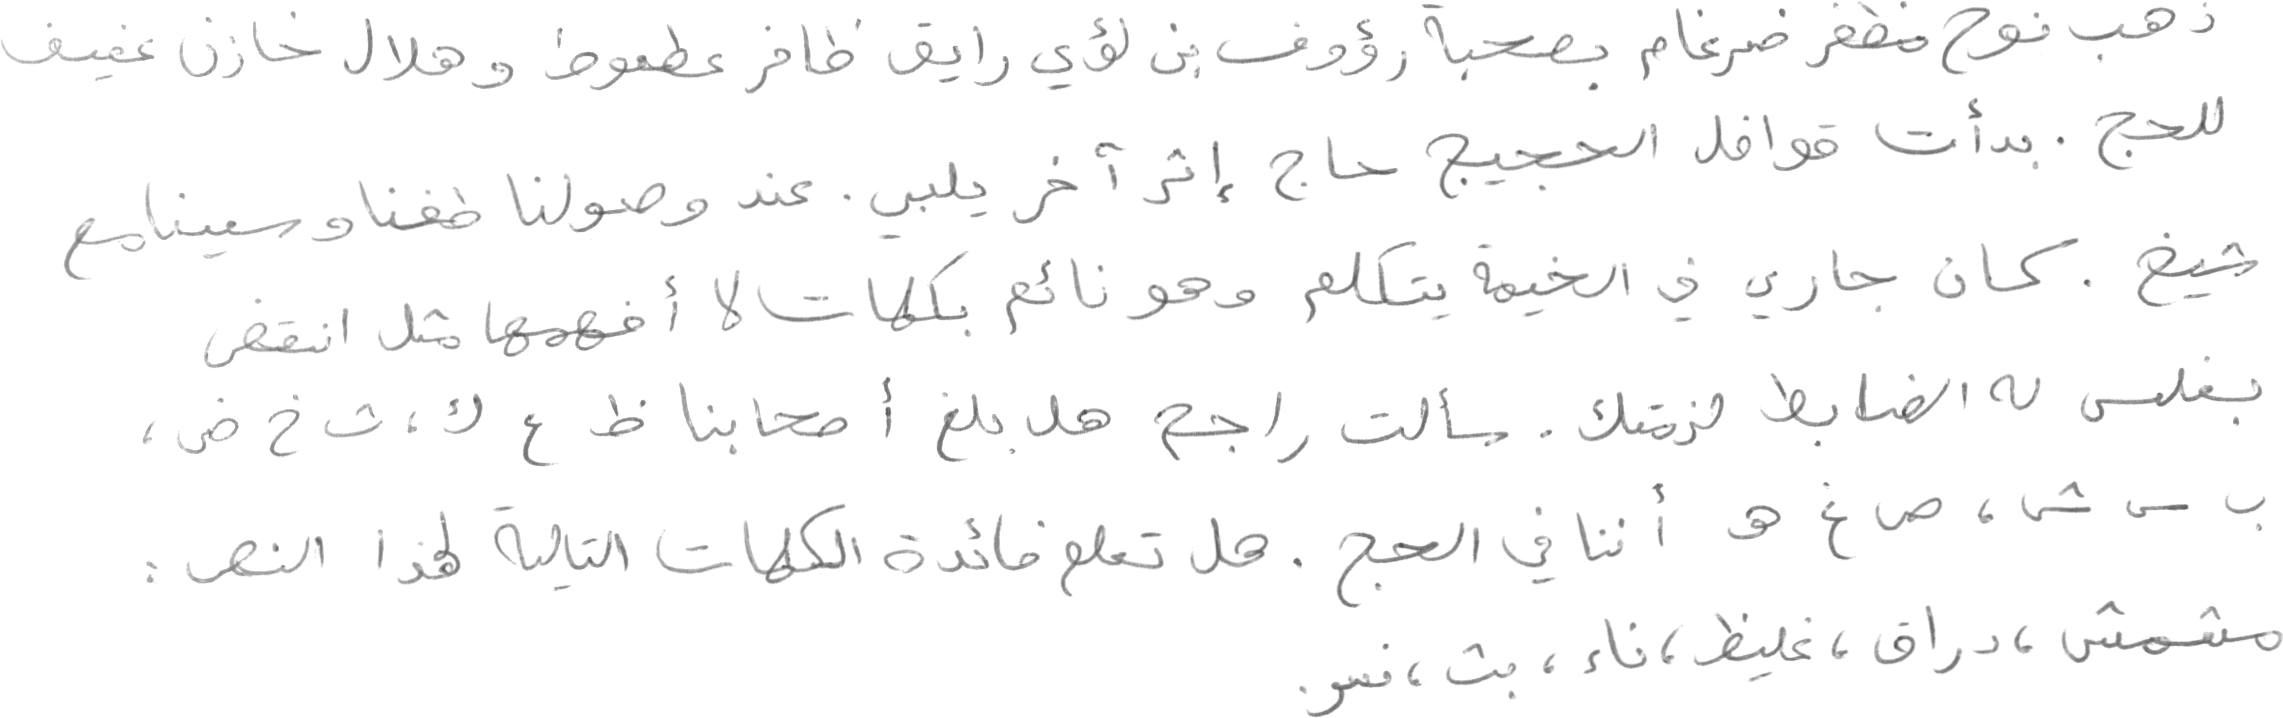 ذهب نوح مظفر ضرغام بصحبة رؤوف بن لؤي رايق ظافر عطعوط و هلال خازن عفيف
للحج . بدأت قوافل الحجيج حاج إثر آخر يلبي . عند وصولنا طفنا وسعينا مع
شيخ . كان جاري في الخيمة يتكلم وهو نائم بكلمات لا أفهمها مثل انتقض
بغلس له الضابط لزمتك . سألت راجح هل بلغ أصحابنا ظ ع ك ، ث خ ض ،
ب س ش ، ص غ هو أننا في الحج . هل تعلم فائدة الكلمات التالية لهذا النص :
مشمش ، دراق ، غليظ ، ناء ، بث ، نس .